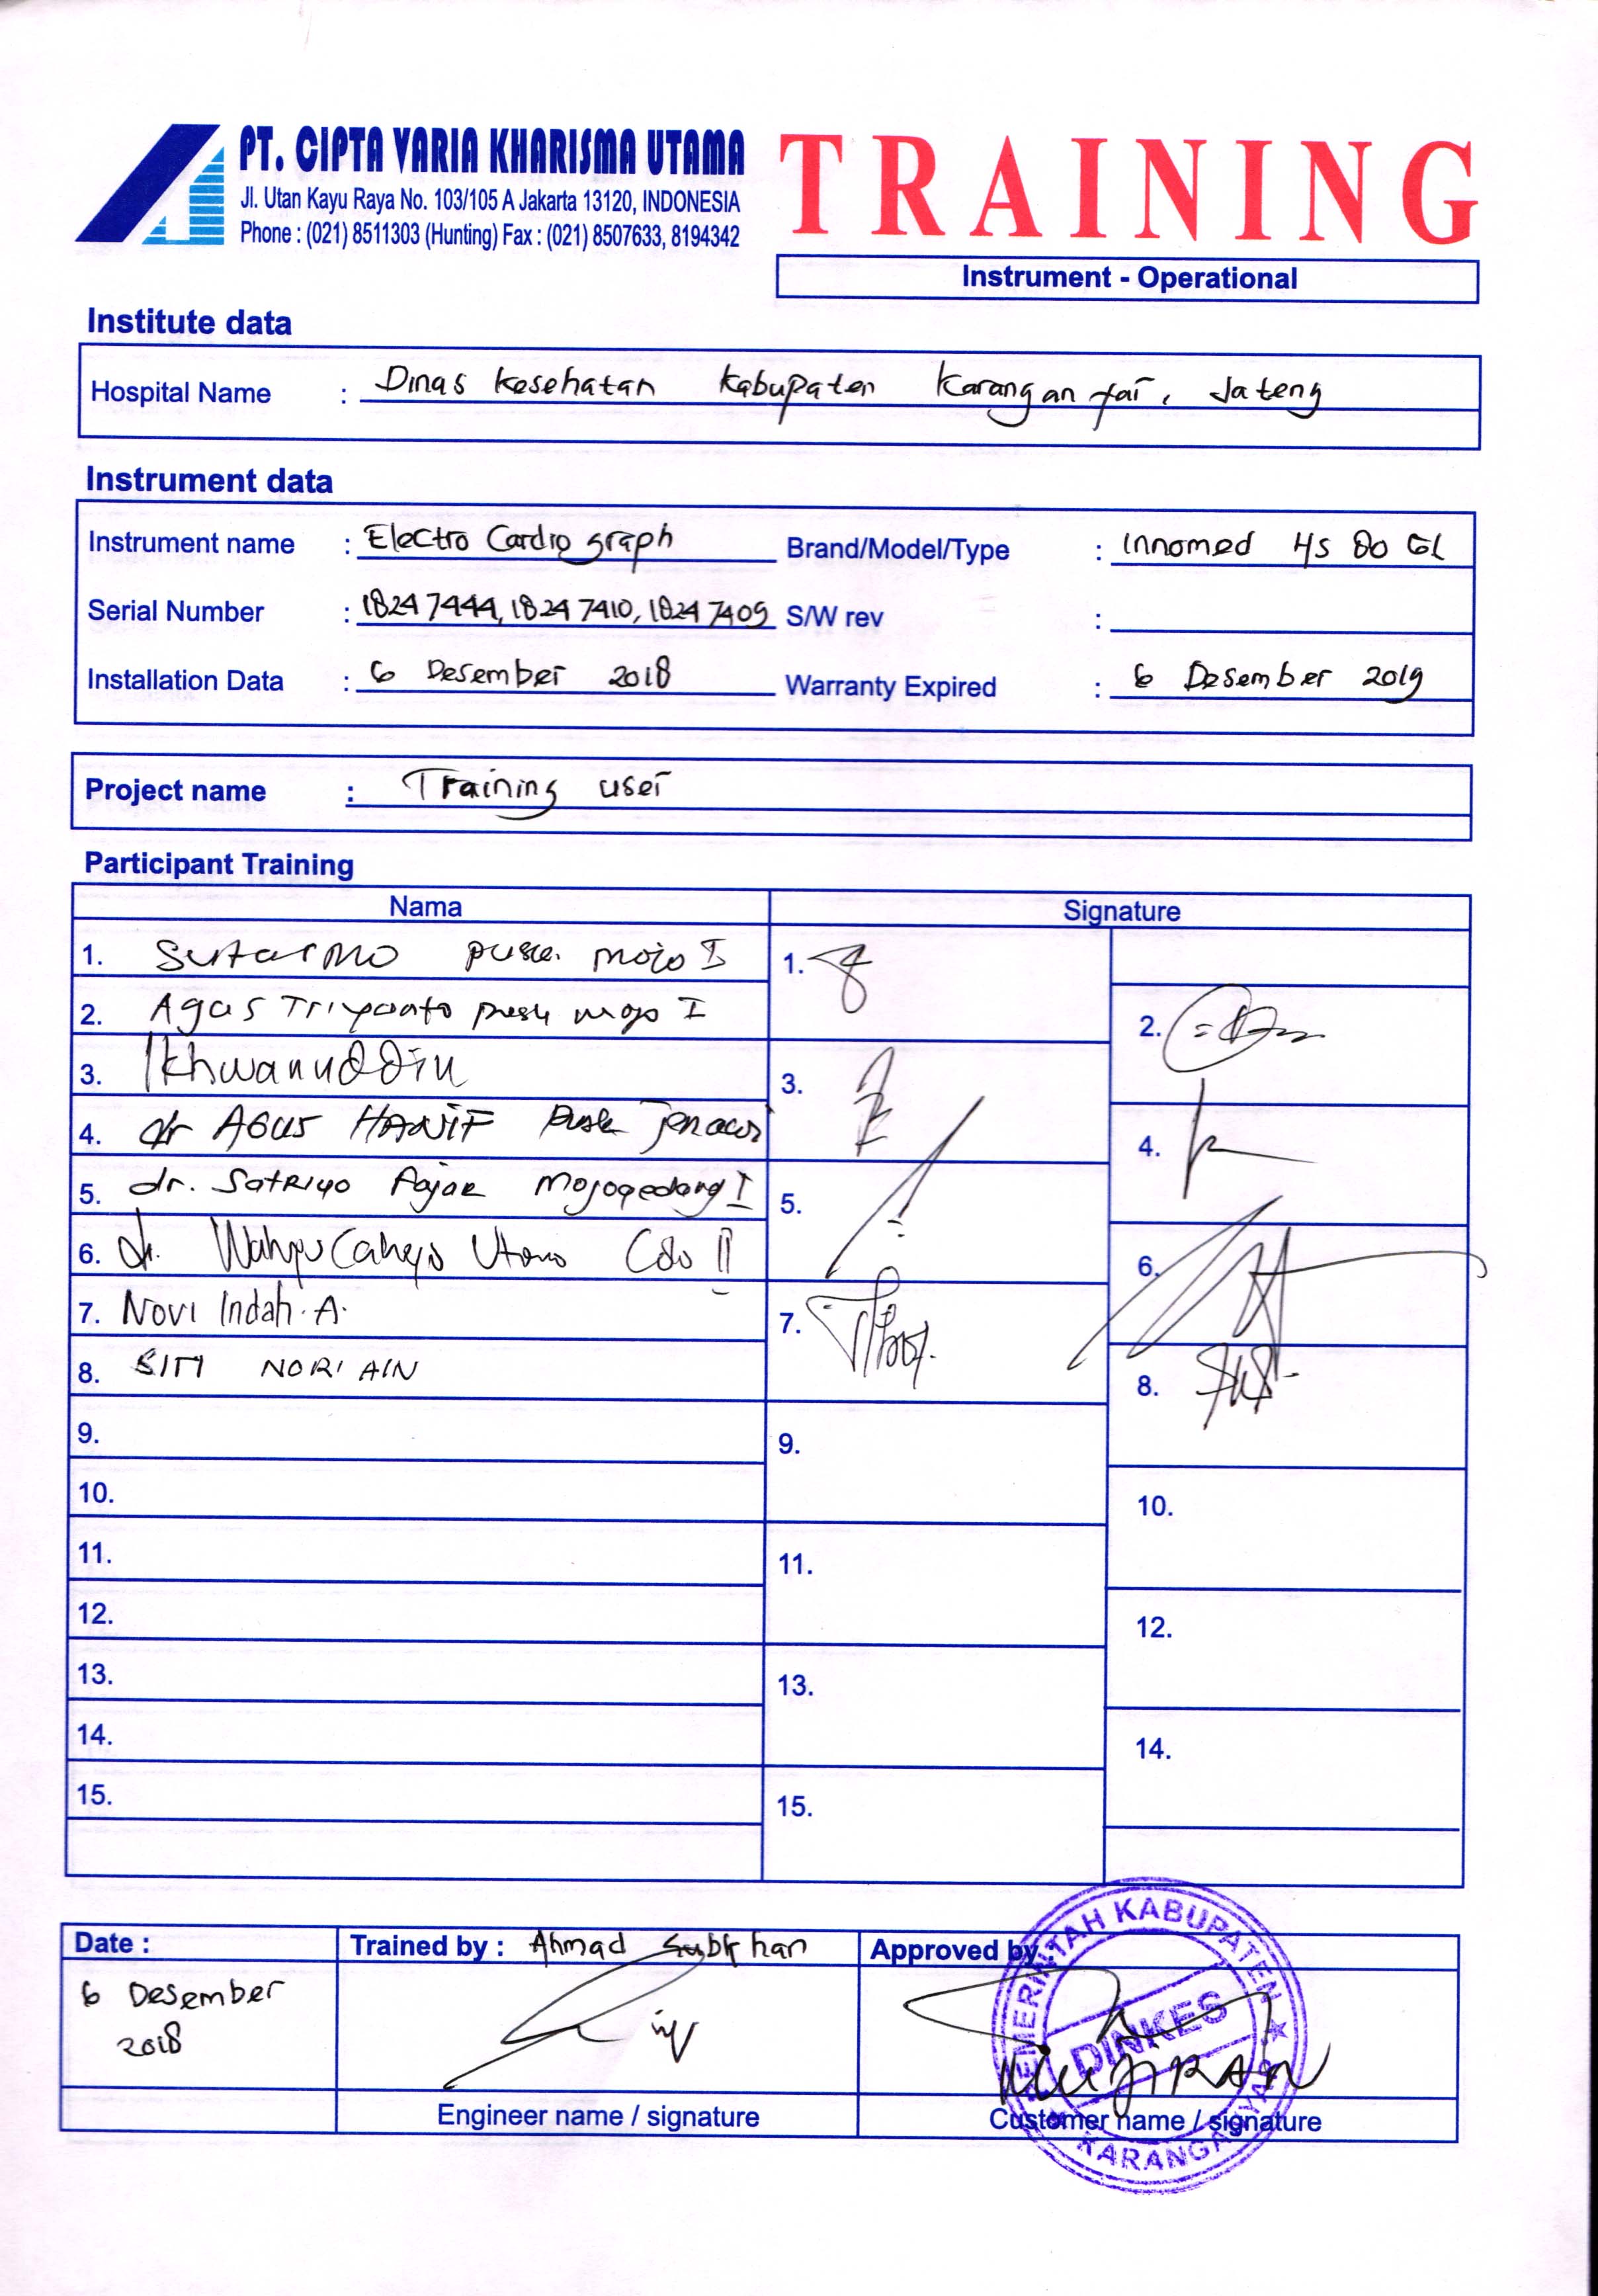 PT. CIPTA VARIA KHARISMA UTAMA
Jl. Utan Kayu Raya No. 103/105 A Jakarta 13120, INDONESIA
Phone : (021) 8511303 (Hunting) Fax : (021) 8507633, 8194342
TRAINING
Instrument - Operational
Institute data
Hospital Name : Dinas Kesehatan Kabupaten Karanganyar, Jateng
Instrument data
Instrument name : Electro Cardio graph Brand/Model/Type : Innomed HS 80 GL
Serial Number : 18247444, 18247410, 18247409 S/W rev :
Installation Data : 6 Desember 2018 Warranty Expired : 6 Desember 2019
Project name : Training user
Participant Training
Nama Signature
1. Sutarmo pusk. mojo I 1.
2. Agus Triyanto pusk mojo I 2.
3. Ikhwanuddin 3.
4. dr AGUS HANIF Pusk 4.
5. dr. Satriyo Fajar Mojogedang I 5.
6. dr. Wahyu Cahyo Utomo II 6.
7. Novi Indah. A. 7.
8. SITI NORI AIN 8.
9. 9.
10. 10.
11. 11.
12. 12.
13. 13.
14. 14.
15. 15.
Date : Trained by : Ahmad Subkhan Approved by :
6 Desember
2018
PEMERINTAH KABUPATEN
DINKES
KARANGANYAR
Engineer name / signature Customer name / signature